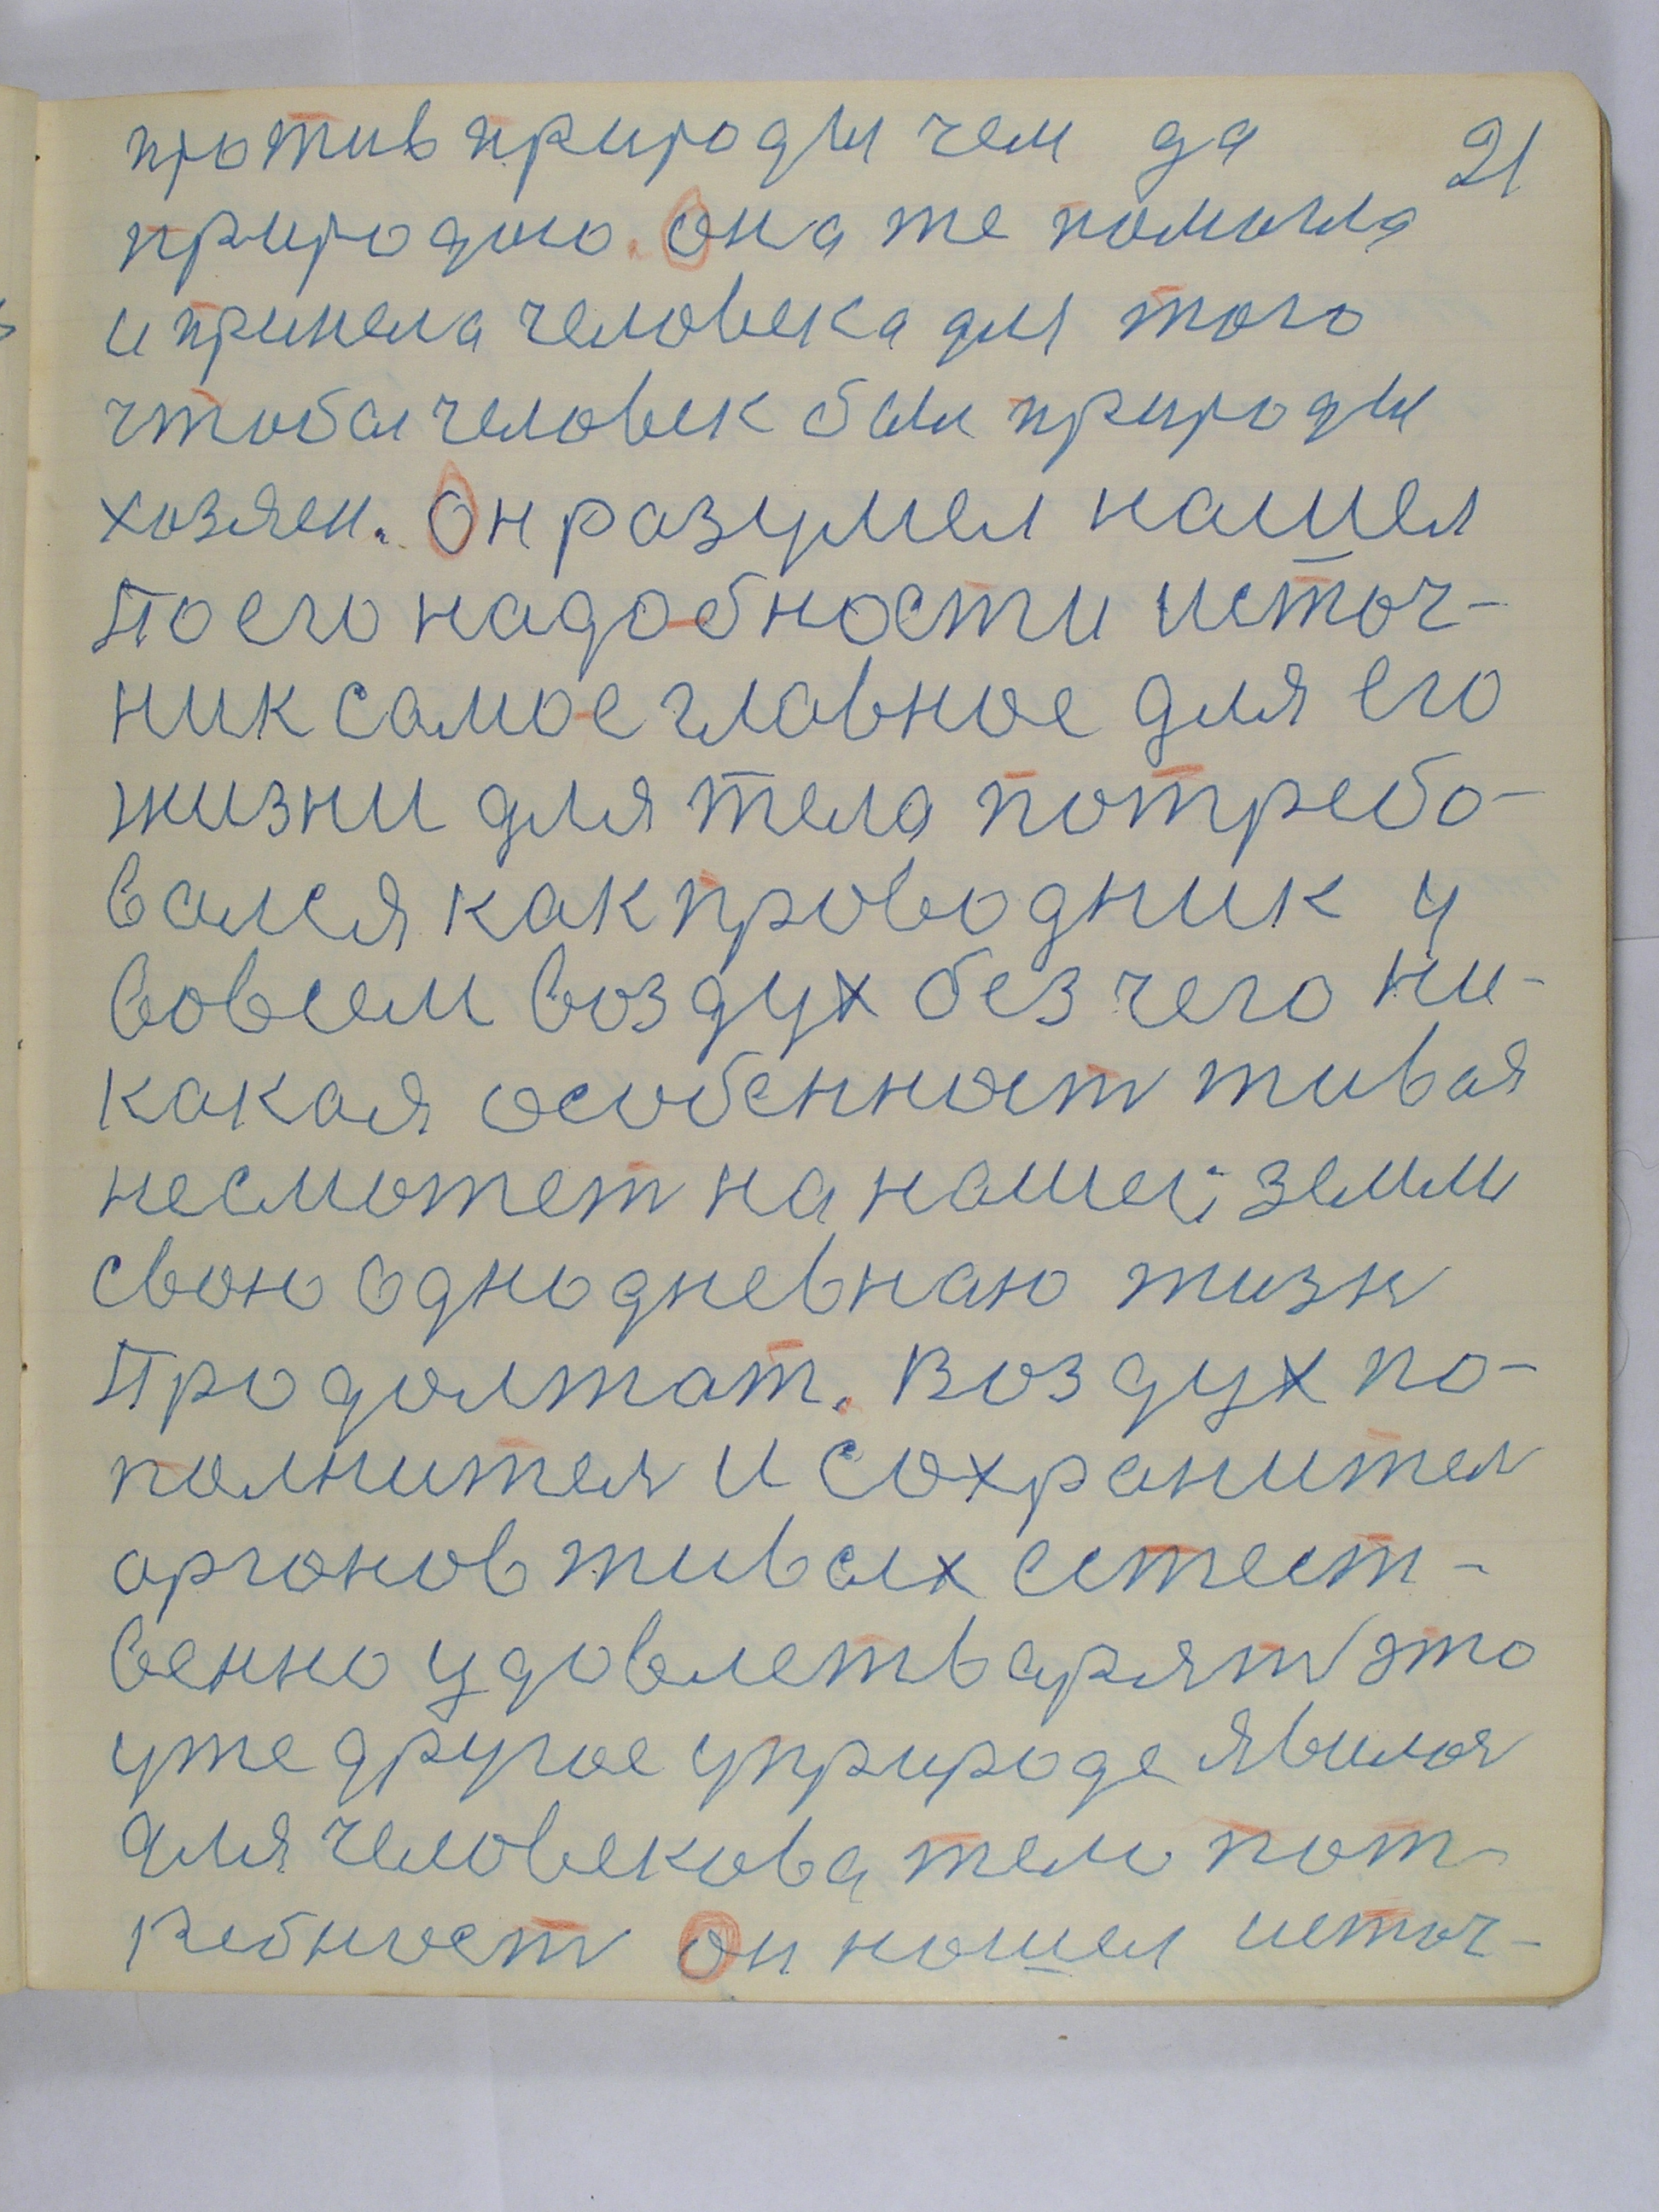 против природы чем да 21
природою. Она же помогла
и принела человека для того
чтобы человек был природы
хозяен. Он разумел нашел
По его надобности источ-
ник самое главное для его
жизни для тела потребо-
вался как проводник у
вовсем воздух без чего ни-
какая особенност живая
несможет на нашей земли
свою однодневнаю жизн
Продолжат. воздух по-
полнител и сохранител
органов живых естест-
венно удовлетварят это
уже другое у природе явилося
для человекова тело пот-
ребност он нашел источ-